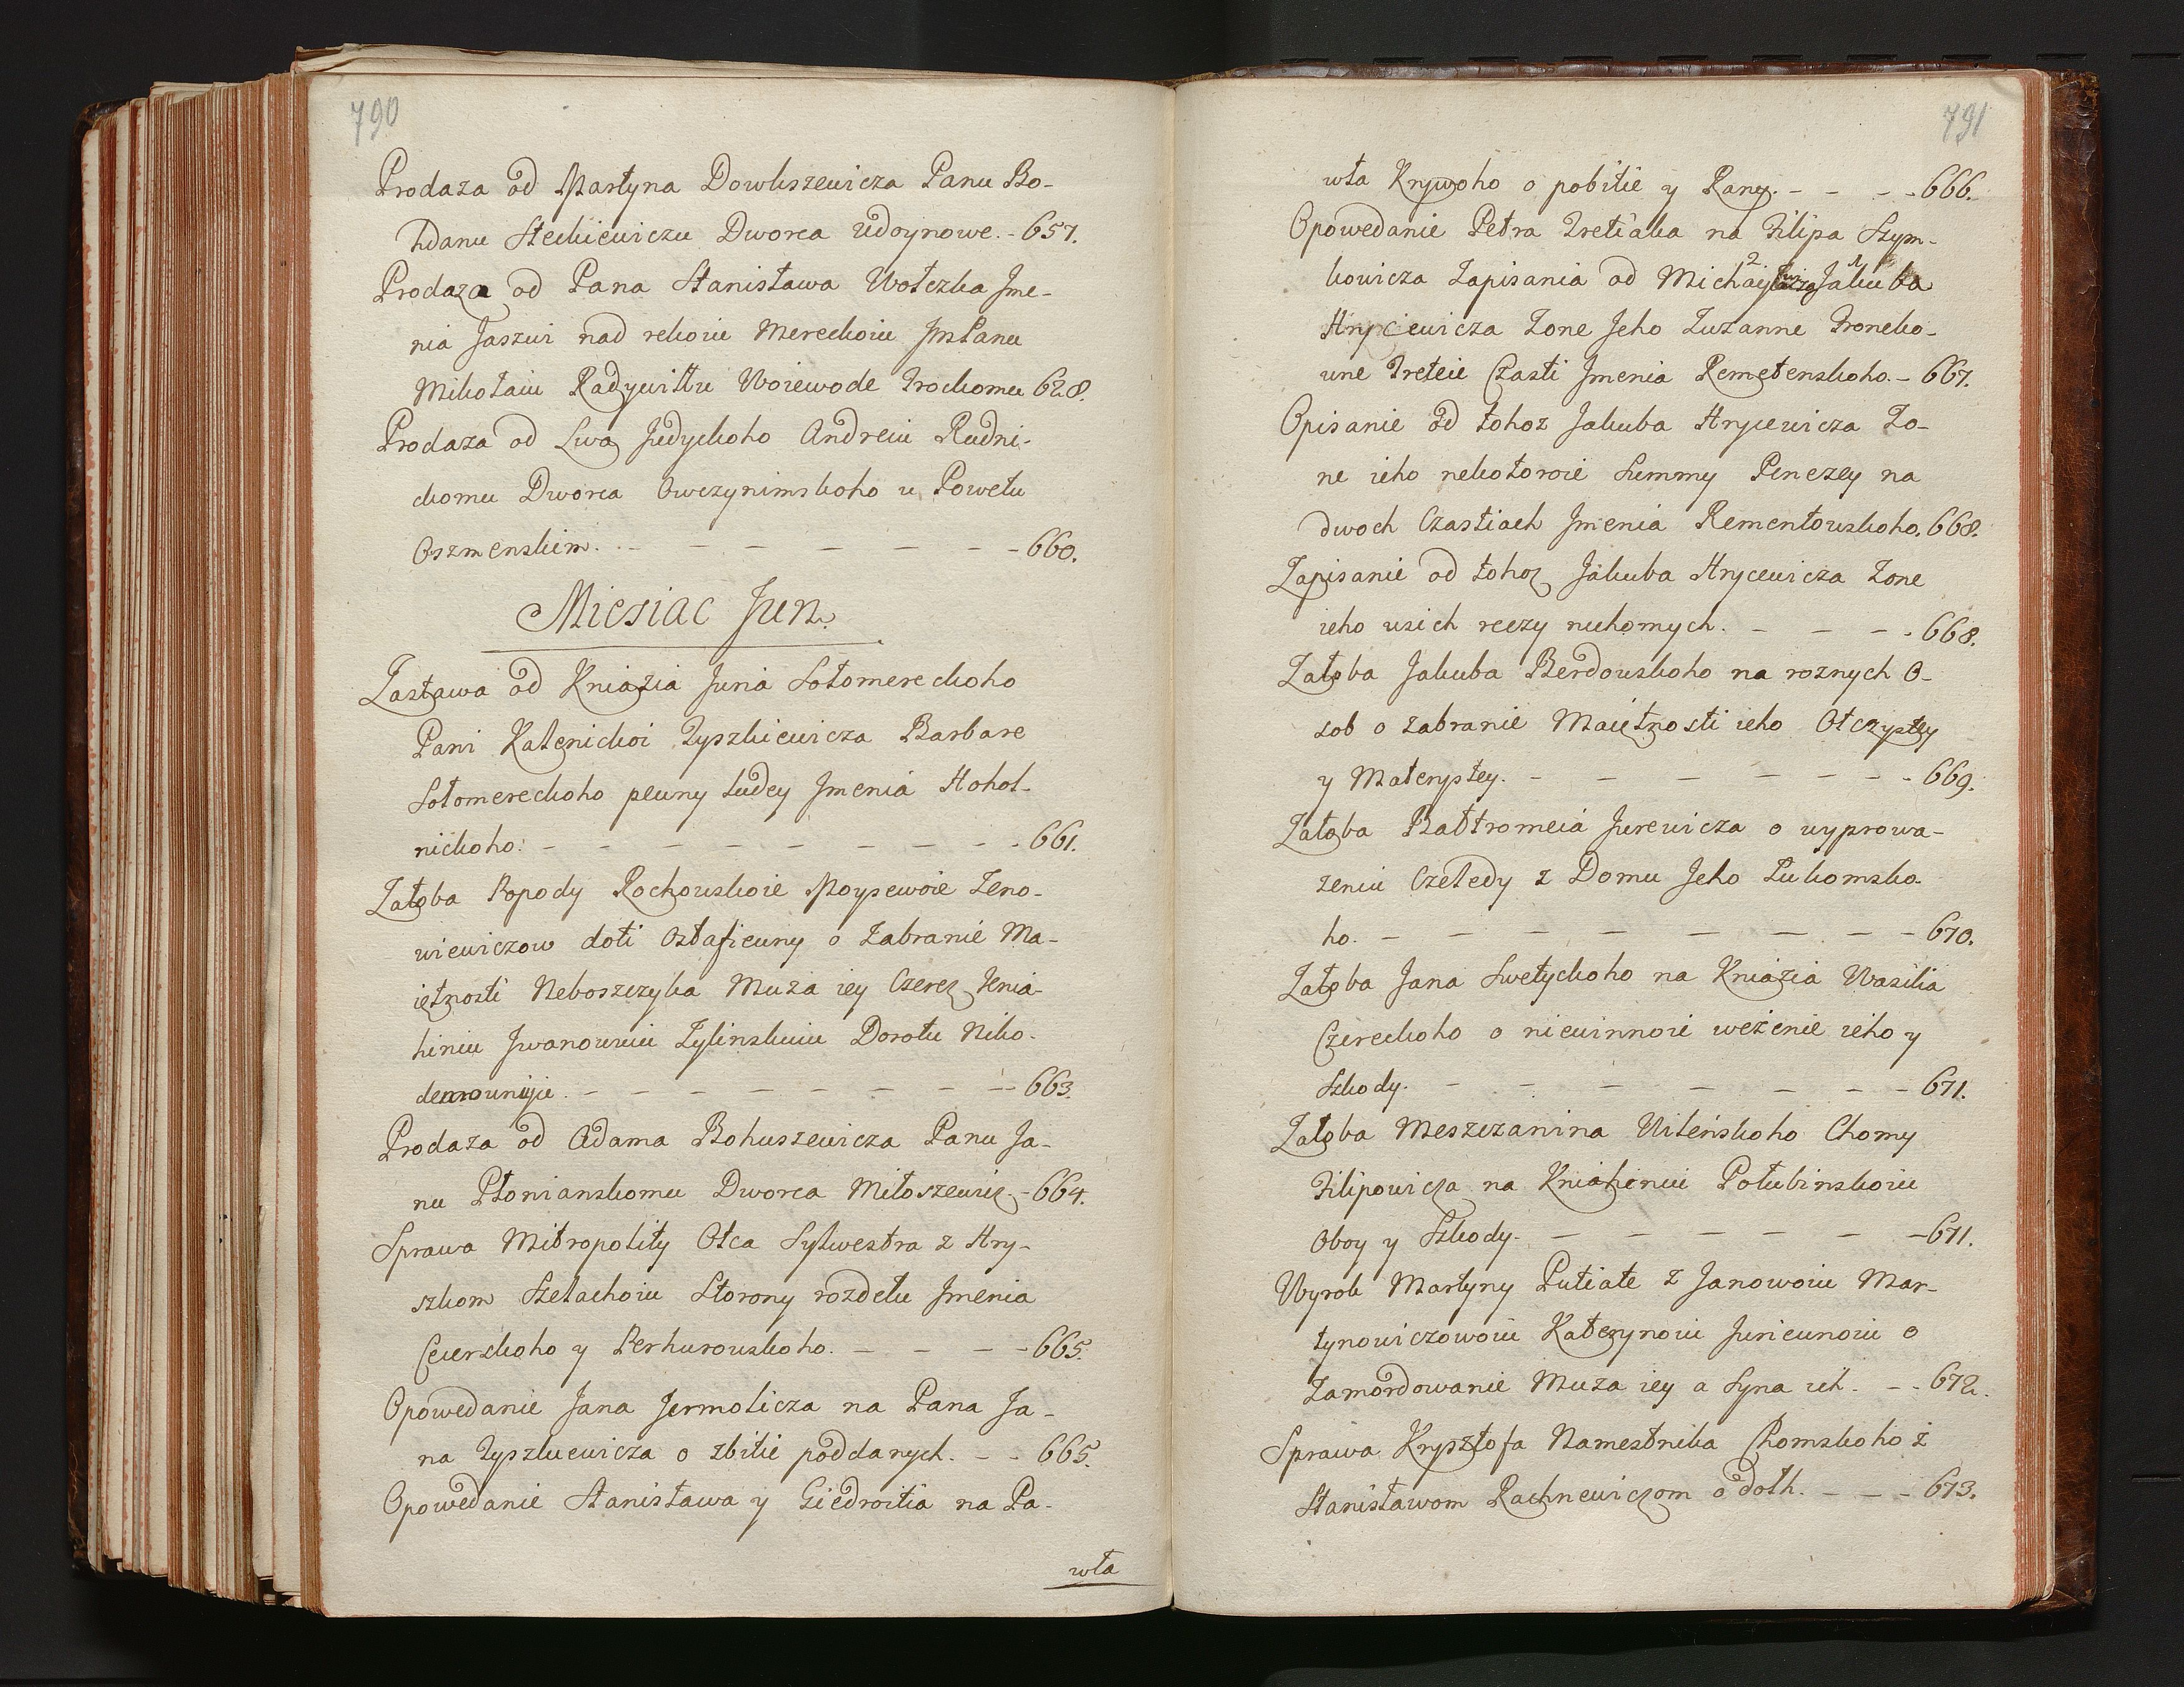 790
Prodaża od Martyna Dowkszewicza Panu Bo-
hdanu Steckiewiczu Dworca Udoynowe. - 657.
Prodaża od Pana Stanisława Wołczka Jme-
nia Jaszui nad rekoiu Mereckoiu JmPanu
Mikołaiu Radywiłłu Woiewode Trockomu 628.
Prodaża od Lwa Judyckoho Andreiu Rudni-
ckomu Dworca Owczynimskoho u Powetu
Oszmenskim. - - - - - - - 660.
Miesiac Jun.
Zastawa od Kniazia Juria Sołomereckoho
Pani Katenickoi Tyszkiewicza Barbare
Sołomereckoho pewny ludey Jmenia Hohol-
nickoho. - - - - - - - - - 661.
Załoba Ropody Rochouskoie Moysewoie Zeno-
wiewiczow doti Ostafieuny o Zabranie Ma-
iętnosti Neboszczyka Muża iey Czerez Knia-
hiniu Jwanownu Żylinskuiu Dorotu Niko-
demouniuju. - - - - - - - - 663.
Prodaża od Adama Bohuszewicza Panu Ja-
nu Płonianskomu Dworca Miłoszewicz. - 664.
Sprawa Mitropolity Otca Sylwestra z Hry-
szkom Szelachoiu Storony rozdełu Jmenia
Ceierskoho y Perhurouskoho. - - - - 665.
Opowedanie Jana Jermolicza na Pana Ja-
na Tyszkiewicza o zbitie poddanych. - - 665.
Opowedanie Stanisława y Giedroitia na Pa-
wła
791
wła Krywoho o pobitie y Rany. - - - - 666.
Opowedanie Petra Tretiaka na Filipa Szym-
kowicza Zapisania od Jakuba
Hrycewicza Zone Jeho Zuzanne Tronko-
une Treteie Czasti Jmenia Remętenskoho. - 667.
Opisanie od tohoż Jakuba Hrycewicza Żo-
ne ieho nekotoroie Summy Penezey na
dwoch Czastiach Jmenia Rementowskoho. 668.
Zapisanie od tohoz Jakuba Hrycewicza Zone
ieho usich reczy ruchomych. - - - - 668.
Załoba Jakuba Berdouskoho na roznych O-
sob o zabranie Maiętnosti ieho Otczystey
y Materystey. - - - - - - - - 669.
Załoba Bałtromeia Jurewicza o wyprowa-
żeniu Czeledy z Domu Jeho Lukomsko-
ho. - - - - - - - - 670.
Załoba Jana Swetyckoho na Kniazia Wasilia
Czereckoho o niewinnoie weżenie ieho y
Szkody. - - - - - - - 671.
Załoba Meszczanina Wileńskoho Chomy
Filipowicza na Kniahiniu Połubinskoiu
Oboy y Szkody. - - - - - - 671.
Wyrok Martyny Putiate z Janowoiu Mar-
tynowiczowoiu Katczynoiu Juriewnoiu o
Zamordowanie Muża iey a Syna ieh. - - 672.
Sprawa Krysztofa Namestnika Chomskoho z
Stanisławom Rachnewiczom o dołh. - - - 673.